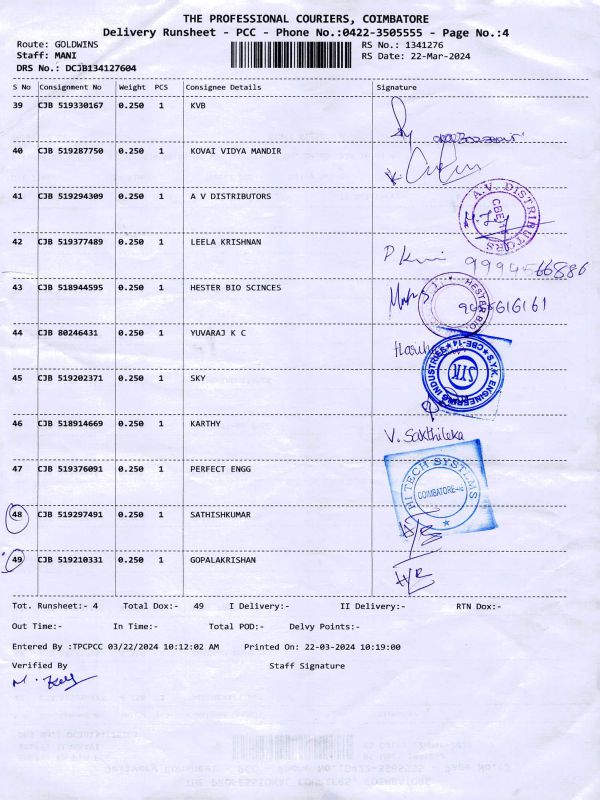 THE PROFESSIONAL COURIERS, COIMBATORE
Delivery Runsheet - PCC - Phone No.:0422-3505555 - Page No.:4
Route: GOLDWINS RS No.: 1341276
Staff: MANI RS Date: 22-Mar-2024
DRS No.: DCJB134127604
S No Consignment No Weight PCS Consignee Details Signature
39 CJB 519330167 0.250 1 KVB
40 CJB 519287750 0.250 1 KOVAI VIDYA MANDIR
41 CJB 519294309 0.250 1 A V DISTRIBUTORS
A.V. DISTRIBUTORS
42 CJB 519377489 0.250 1 LEELA KRISHNAN
43 CJB 518944595 0.250 1 HESTER BIO SCINCES
HESTER BIO
44 CJB 80246431 0.250 1 YUVARAJ K C
45 CJB 519202371 0.250 1 SKY
S.Y.K. ENGINEERING INDUSTRIES CBE-14
SYK
46 CJB 518914669 0.250 1 KARTHY
V. Sakthileka
47 CJB 519376091 0.250 1 PERFECT ENGG
HI TECH SYSTEMS
COIMBATORE
48 CJB 519297491 0.250 1 SATHISHKUMAR
49 CJB 519210331 0.250 1 GOPALAKRISHAN
Tot. Runsheet:- 4 Total Dox:- 49 I Delivery:- II Delivery:- RTN Dox:-
Out Time:- In Time:- Total POD:- Delvy Points:-
Entered By :TPCPCC 03/22/2024 10:12:02 AM Printed On: 22-03-2024 10:19:00
Verified By Staff Signature